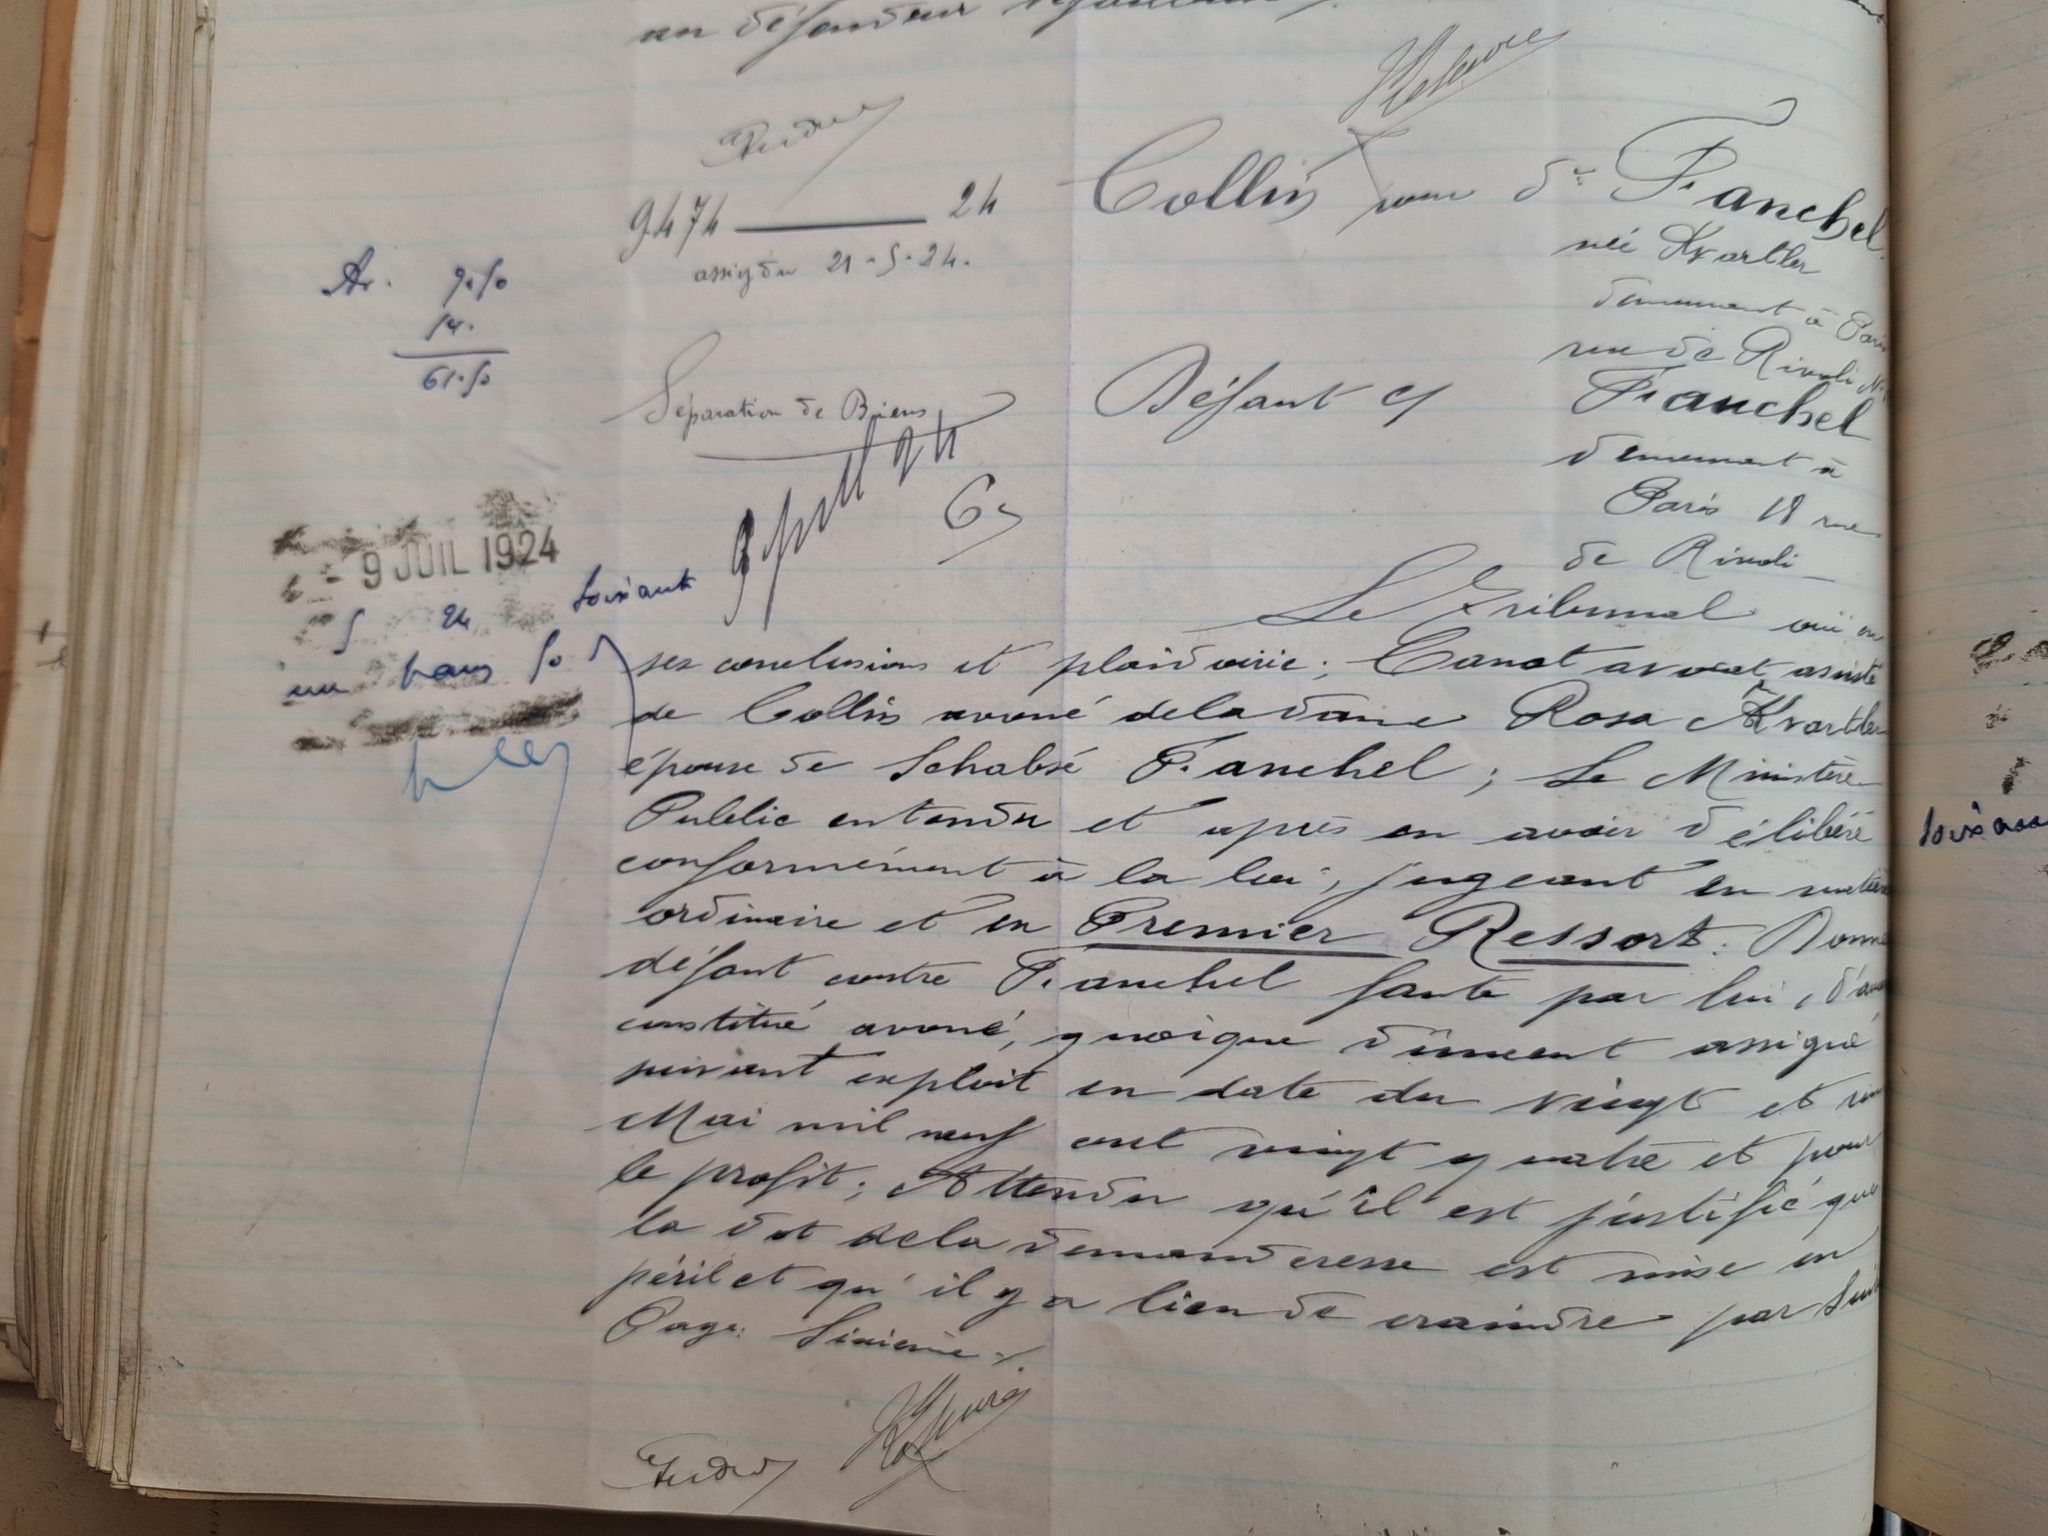 au défendeur défaillant /.
9474 — 24
assig du 21-5-24.
Collin pour de Fanchel
née Kvartler
demeurant à Paris
rue de Rivoli N°
Ar. 9.50
61.50
Séparation de Biens
Défaut c/ Fanchel
demeurant à
Paris 18 rue
de Rivoli
9 JUIL 1924
soixante
un francs 50
Le Tribunal ouï en
ses conclusions et plaidoirie; Canot avocat, assisté
de Collin avoué de la dame Rosa Kvartler
épouse de Schabsé Fanchel; Le Ministère
Public entendu et après en avoir délibéré
conformément à la loi, jugeant en matière
ordinaire et en Premier Ressort. Donne
défaut contre Fanchel faute par lui, d'avoir
constitué avoué, quoique dûment assigné
suivant exploit en date du vingt et un
Mai mil neuf cent vingt quatre et pour
le profit; Attendu qu'il est justifié que
la dot de la demanderesse est mise en
péril et qu'il y a lieu de craindre par suite
Page: Sixième /.